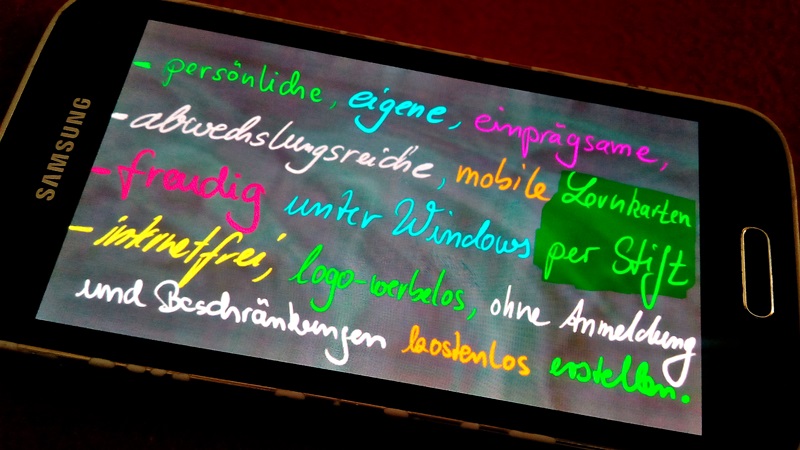 SAMSUNG
- persönliche, eigene, einprägsame,
- abwechslungsreiche, mobile Lernkarten
- freudig unter Windows per Stift
- internetfrei, logo-werbelos, ohne Anmeldung
und Beschränkungen kostenlos erstellen.